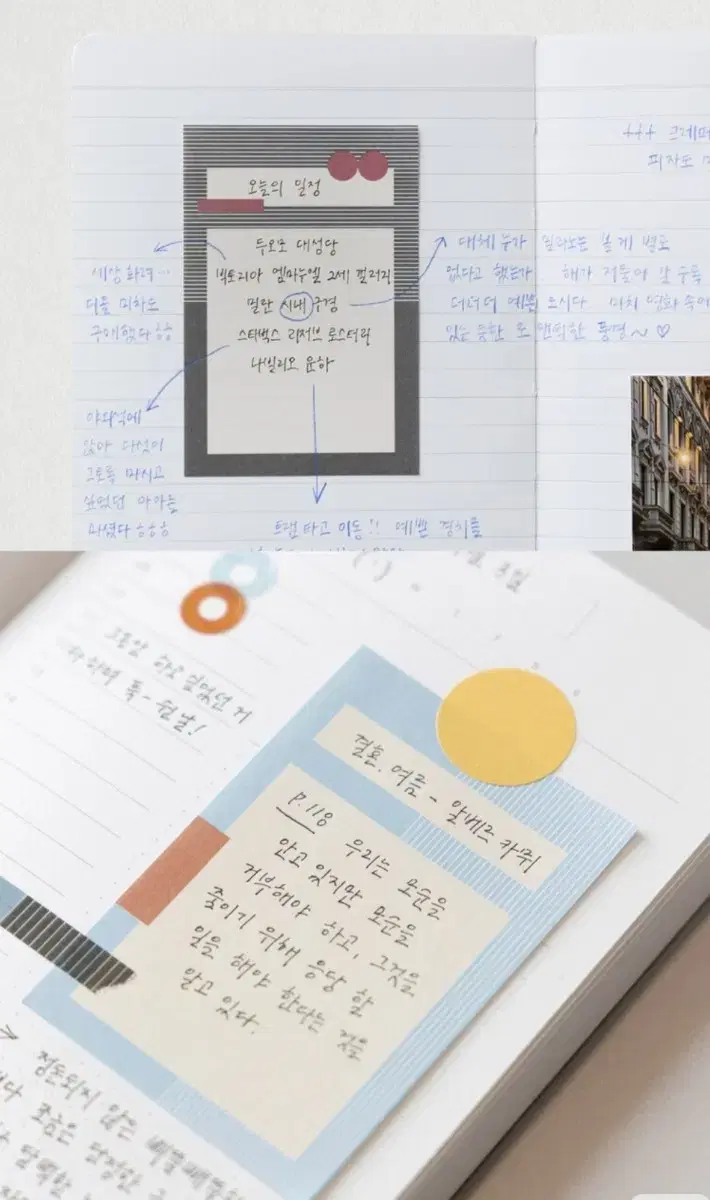 +++ 크레페
피자도
오늘의 일정
두오모 대성당
빅토리아 엠마누엘 2세 갤러리
밀란 시내 구경
스타벅스 리저브 로스터리
나빌리오 운하
세상 화려…
더블 미화는
구매했다 ㅎㅎ
대체 누가 밀라노는 볼 게 별로
없다고 했는가 해가 저물어 갈수록
더더더 예쁜 도시다 마치 영화 속에
있는 듯한 로맨틱한 풍경~ ♡
야외석에
앉아 다섯이
그토록 마시고
싶었던 아아를
마셨다 ㅎㅎㅎ
트램 타고 이동!! 예쁜 경치를
그동안 하고 싶었던 거
다 하며 푹- 쉰 날!
결혼, 여름 - 알베르 카뮈
p.118 우리는 모순을
안고 있지만 모순을
거부해야 하고, 그것을
줄이기 위해 응당 할
일을 해야 한다는 것을
알고 있다.
정돈되지 않은